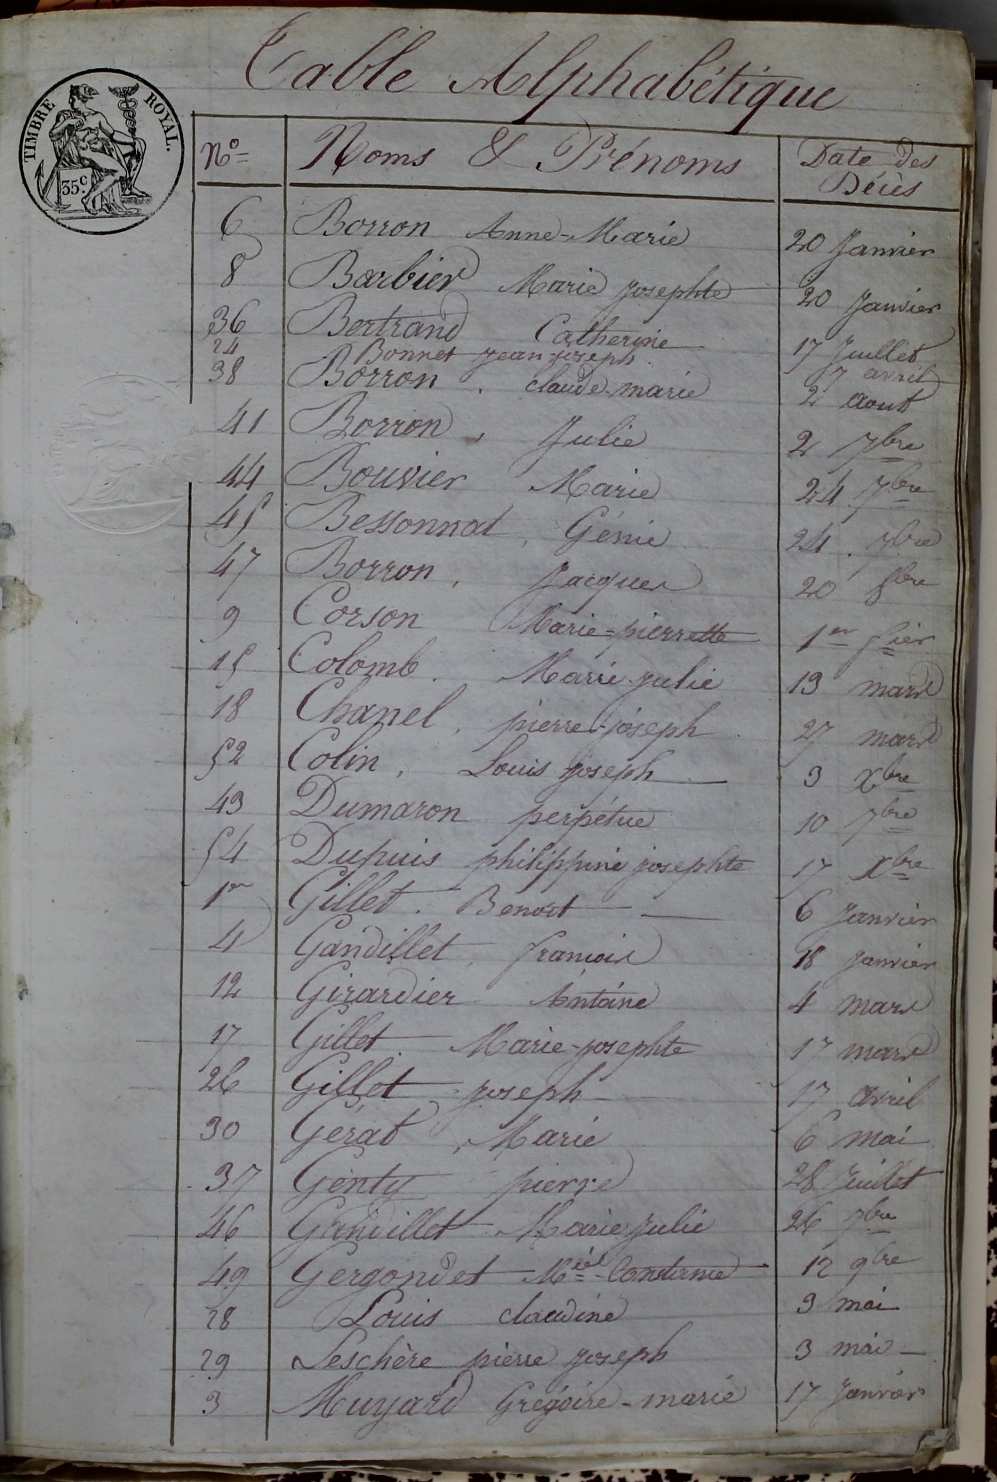 Table Alphabétique
TIMBRE ROYAL.
35 c.
No Noms & Prénoms Date des Décès
6 Borron Anne-Marie 20 Janvier
8 Barbier Marie Josephte 20 Janvier
36 Bertrand Catherine 17 Juillet
24 Bonnet jean-joseph 7 avril
38 Borron. claude-marie 2 aout
41 Borron, Julie 2 7bre
44 Bouvier Marie 24 7bre
45 Bessonnat, Génie 24. 7bre
47 Borron, Jacques 20 8bre
9 Corson Marie=pierrette 1er fier
15 Colomb. Marie julie 19 mars
18 Chanel, pierre-joseph 27 mars
52 Colin, Louis joseph 3 Xbre
43 Dumaron perpétue 10 7bre
54 Dupuis philippine josephte 17 Xbre
1er Gillet. Benoit 6 Janvier
4 Gandillet, francois 18 Janvier
12 Girardier Antoine 4 mars
17 Gillet. Marie-josephte 17 mars
26 Gillet joseph 17 avril
30 Gérat, Marie 6 mai
37 Genty pierre 28 Juillet
46 Grandillet Marie Julie 26 7bre
49 Gergondet 12 9bre
28 Louis claudine 3 mai
29 Leschère pierre joseph 3 mai
3 Muyard Grégoire-marie 17 Janvier